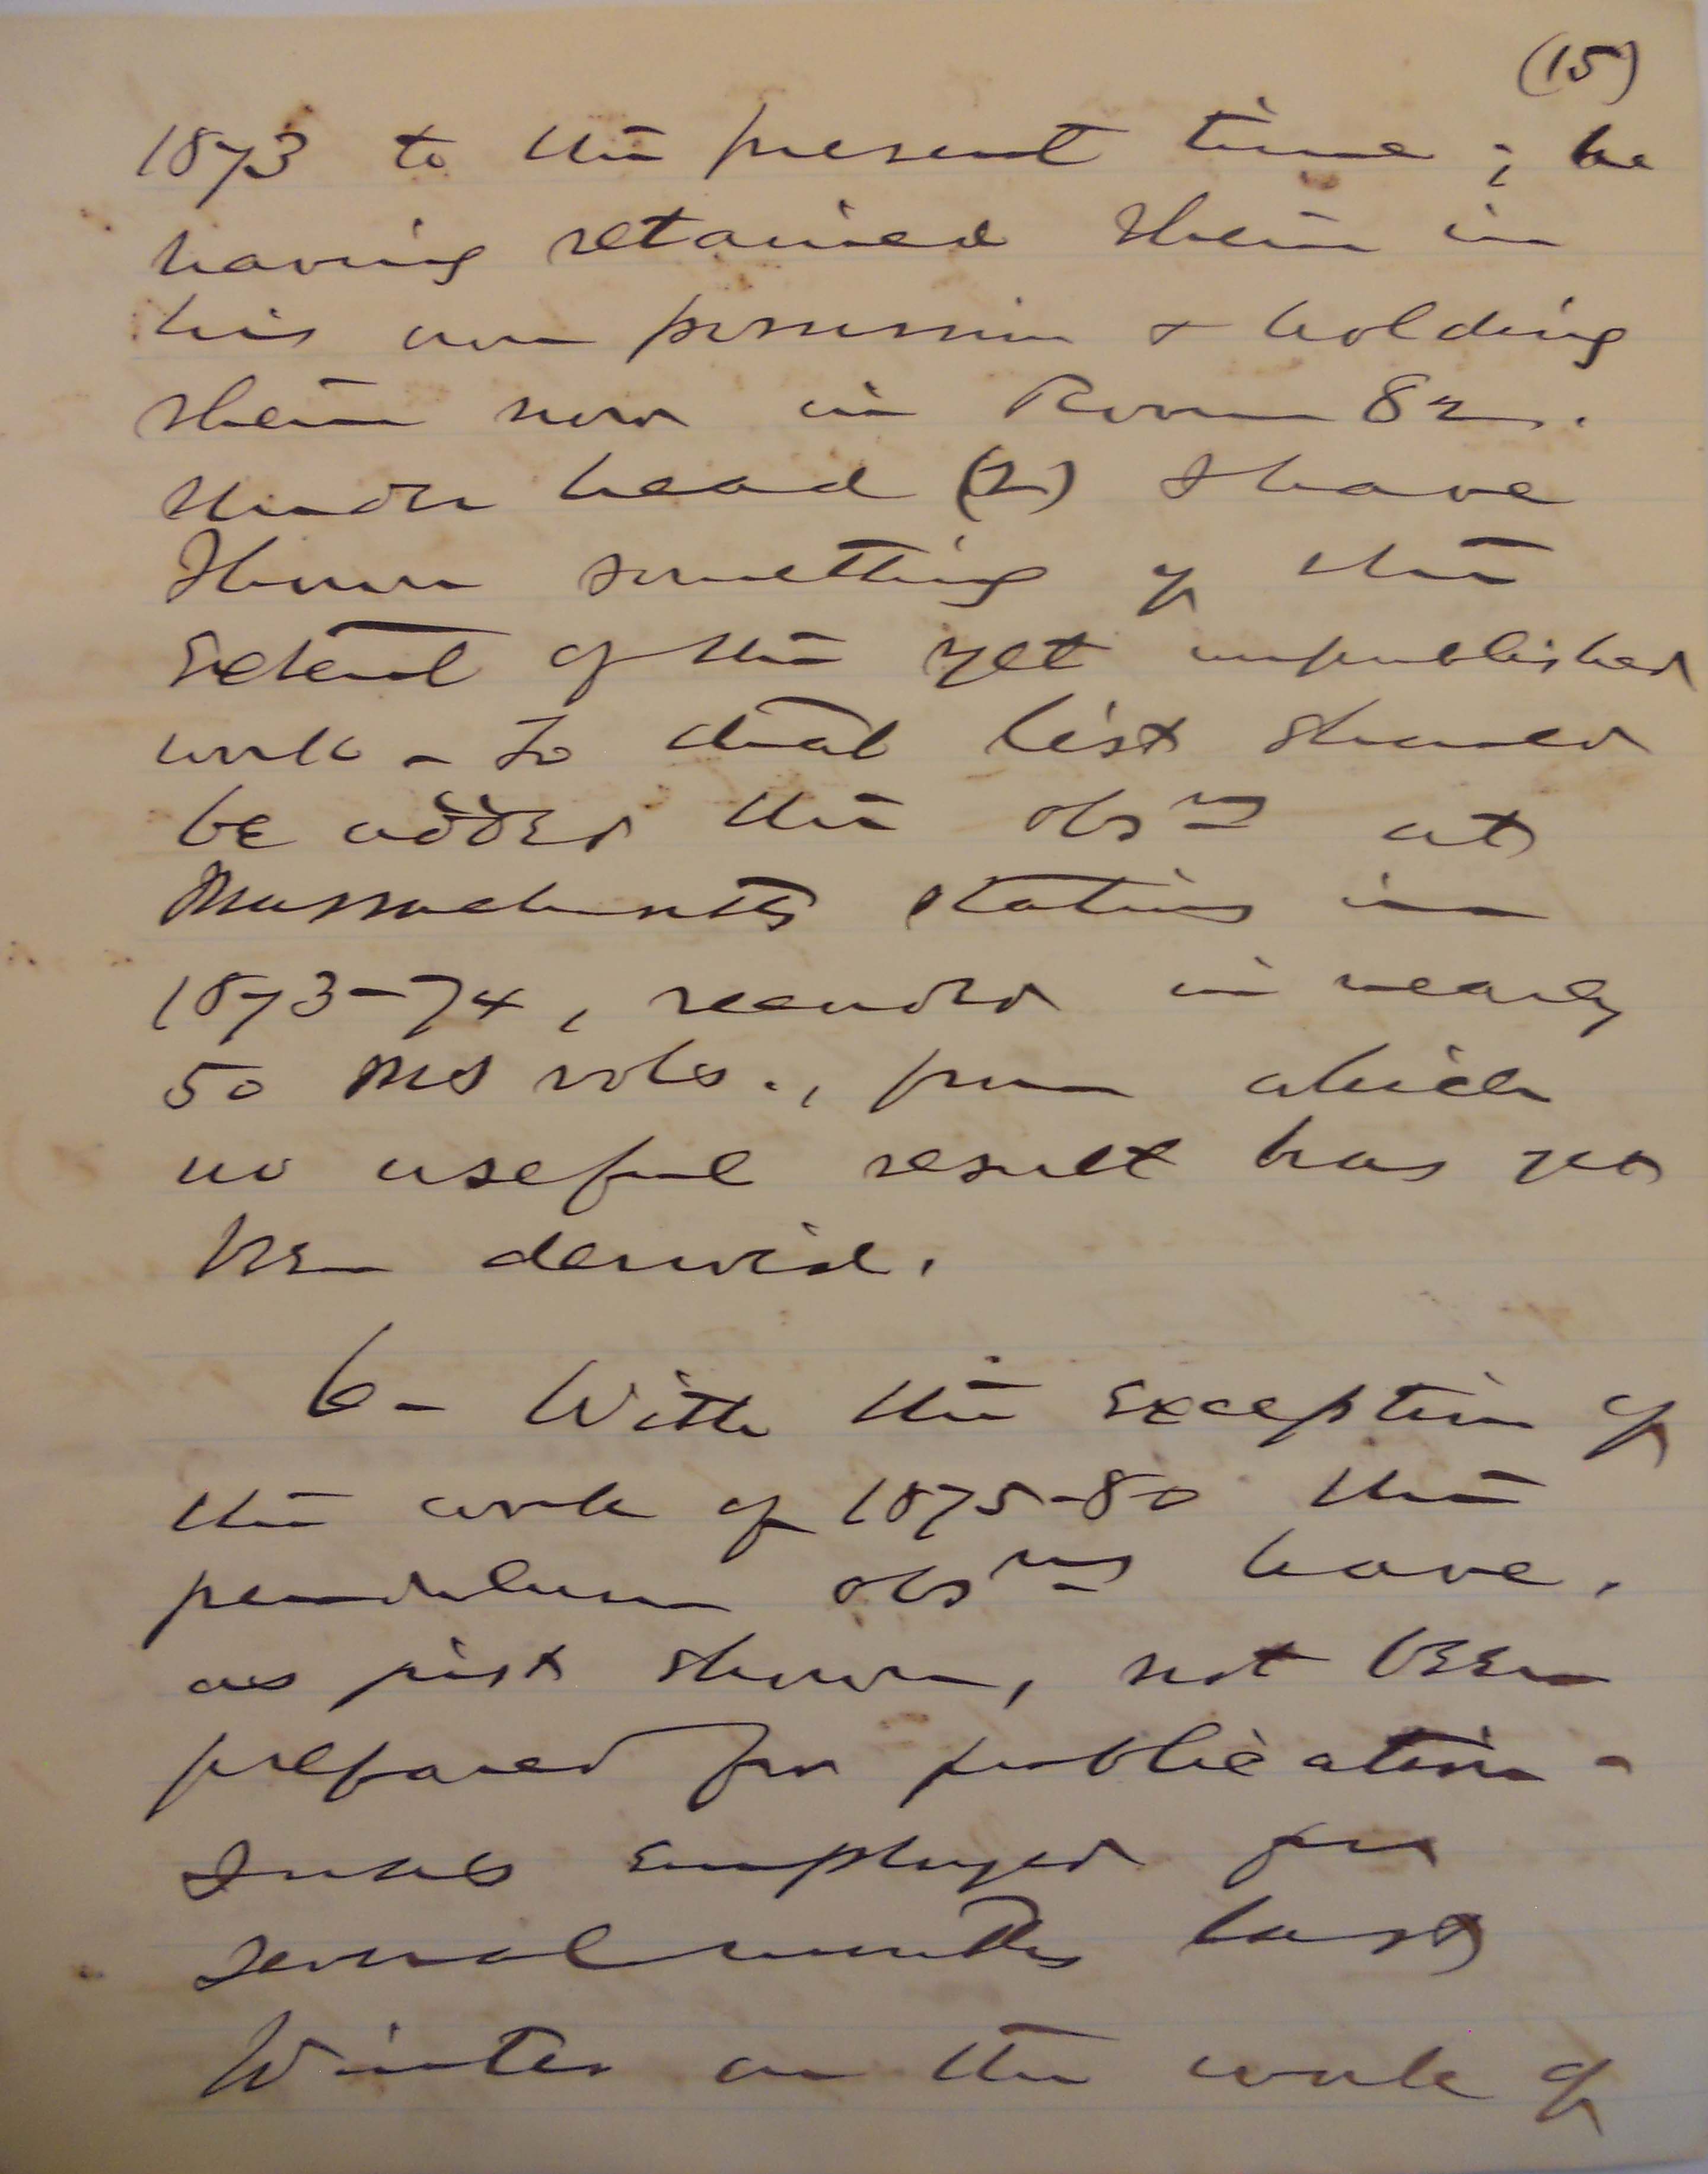 (15)
1873 to the present time; he
having retained them in
his own possession & holding
them now in Room 82.
Under head (2) I have
shown something of the
extent of the yet unpublished
work - To that list should
be added the obsns at
Massachusetts stations in
1873-74, recorded in nearly
50 MS vols., from which
no useful result has yet
been derived.
6- With the exception of
the work of 1875-80 the
pendulum obsns have,
as just shown, not been
prepared for publication -
I was employed for
several months last
Winter on the work of